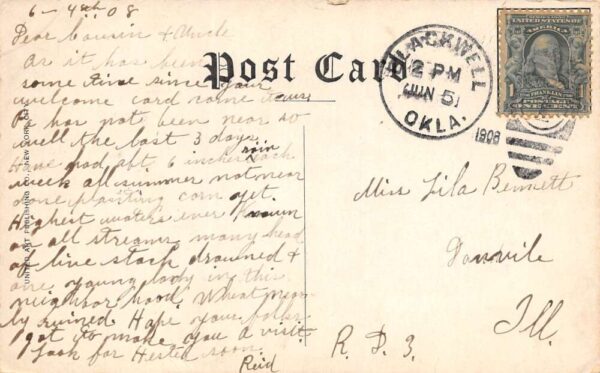 6-4th 08
Dear Cousin & Uncle
As it has been
some time since your
welcome card came to us
Pa has not been near so
well the last 3 days.
Have had abt. 6 inches rain each
week all summer not near
done planting corn yet.
Highest waters ever known
on all streams many head
of live stock drowned &
one young lady in this
neighborhood. Wheat near-
ly ruined. Hope your folks
get to make you a visit.
Look for Hester soon.
Reid
Post Card
BLACKWELL
12 PM
JUN 5
OKLA.
1908
UNITED STATES OF AMERICA
FRANKLIN
POSTAGE
ONE CENT
1
Miss Lila Bennett
Danvile
Ill
R. D. 3.